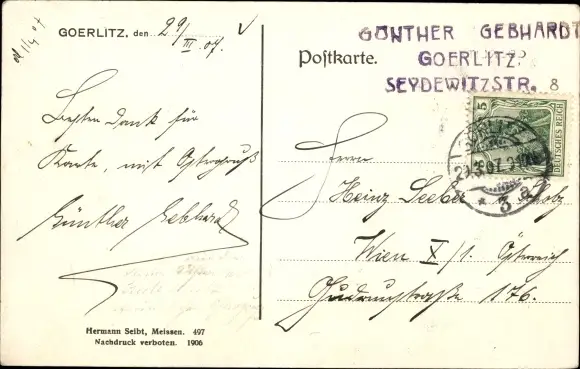 GOERLITZ, den 29/III. 07.
Besten Dank für
Karte, mit Ostergruß
Günther Gebhard
Hermann Seibt, Meissen. 497
Nachdruck verboten. 1906
GÜNTHER GEBHARDT
GOERLITZ.
SEYDEWITZSTR. 8
Postkarte.
5
DEUTSCHES REICH
29.3.07
* 3 a
Herrn
Heinz Seeber
Wien X/1. Österreich
Gudrunstraße 176.